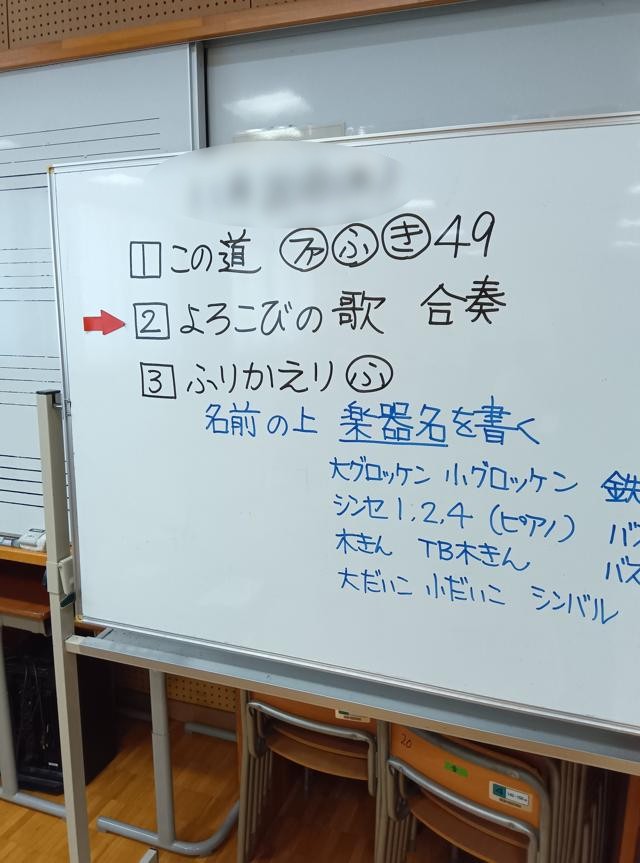 1 この道 ファ ふ き 49
2 よろこびの歌 合奏
3 ふりかえり ふ
名前の上 楽器名を書く
大グロッケン 小グロッケン 鉄
シンセ1,2,4 (ピアノ) バス
木きん TB木きん バス
大だいこ 小だいこ シンバル
20